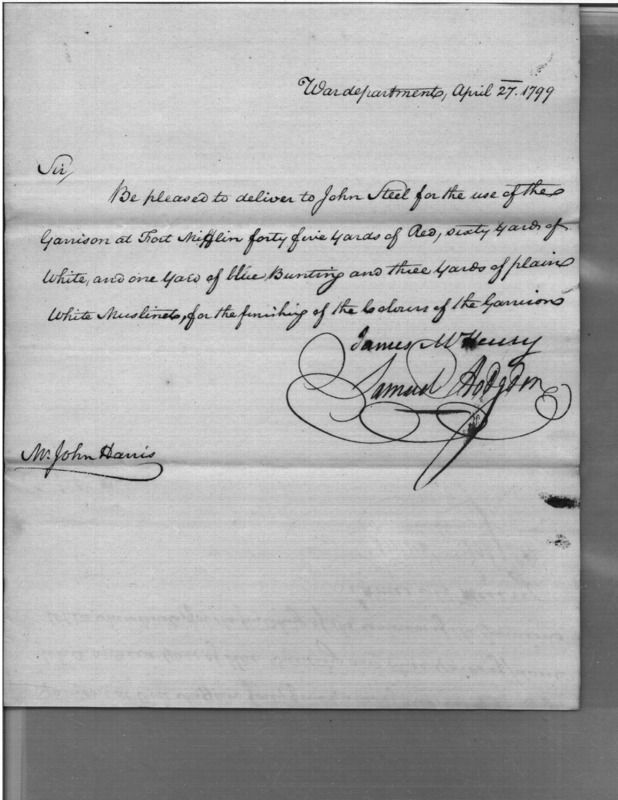 War department, April 27. 1799
Sir,
Be pleased to deliver to John Steel for the use of the
Garrison at Fort Mifflin forty five yards of Red, sixty yards of
White, and one yard of blue Bunting and three yards of plain
White Muslinet, for the finishing of the Colours of the Garrison
James McHenry
Samuel Hodgdon
Mr. John Harris